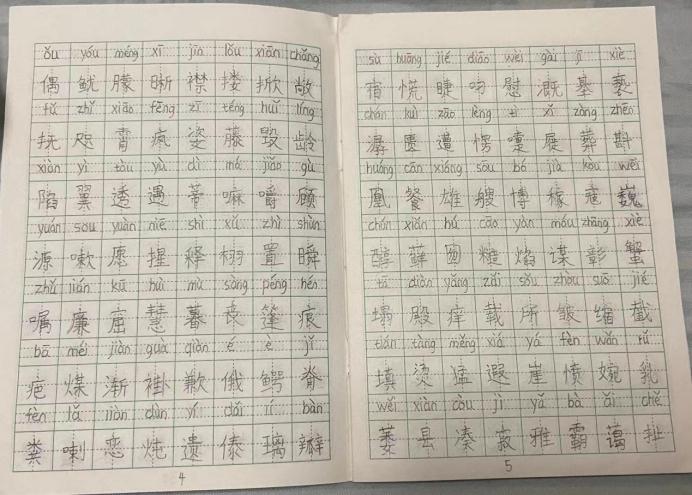 ǒu yóu méng xī jīn lǒu xiān chǎng
偶 鱿 朦 晰 襟 搂 掀 敞
fǔ zhǐ xiāo fēng zī téng huǐ líng
抚 咫 霄 疯 姿 藤 毁 龄
xiàn yì tòu yù dì má jiáo gù
陷 翼 透 遇 蒂 嘛 嚼 顾
yuán sòu yuàn niē shì xǔ zhì shùn
源 嗽 愿 捏 释 栩 置 瞬
zhǔ lián kū huì mù sàng péng hén
嘱 廉 窟 慧 暮 丧 篷 痕
bā méi jiàn guà qiàn é è jǐ
疤 煤 渐 褂 歉 俄 鳄 脊
fèn lǎ liàn dùn yí dǎi lí bàn
粪 喇 恋 炖 遗 傣 璃 瓣
4
sù huāng jié diāo wèi gài jī xiè
宿 慌 睫 叼 慰 溉 基 亵
chán kuì zāo lèng tì xǐ zàng zhēn
潺 匮 遭 愣 屉 葬 斟
huáng cān xióng sōu bó jià kòu wēi
凰 餐 雄 艘 博 稼 寇 巍
chún xiǎn hú cāo yàn móu zhāng xiè
醇 藓 囫 糙 焰 谋 彰 蟹
tā diàn yǎng zǎi suǒ zhòu suō jié
塌 殿 痒 载 所 皱 缩 截
tián tàng měng xiá yá fèn wǎn rǔ
填 烫 猛 遐 崖 愤 婉 乳
wěi xiàn còu jì yǎ bà ǎi chě
萎 县 凑 寂 雅 霸 蔼 扯
5